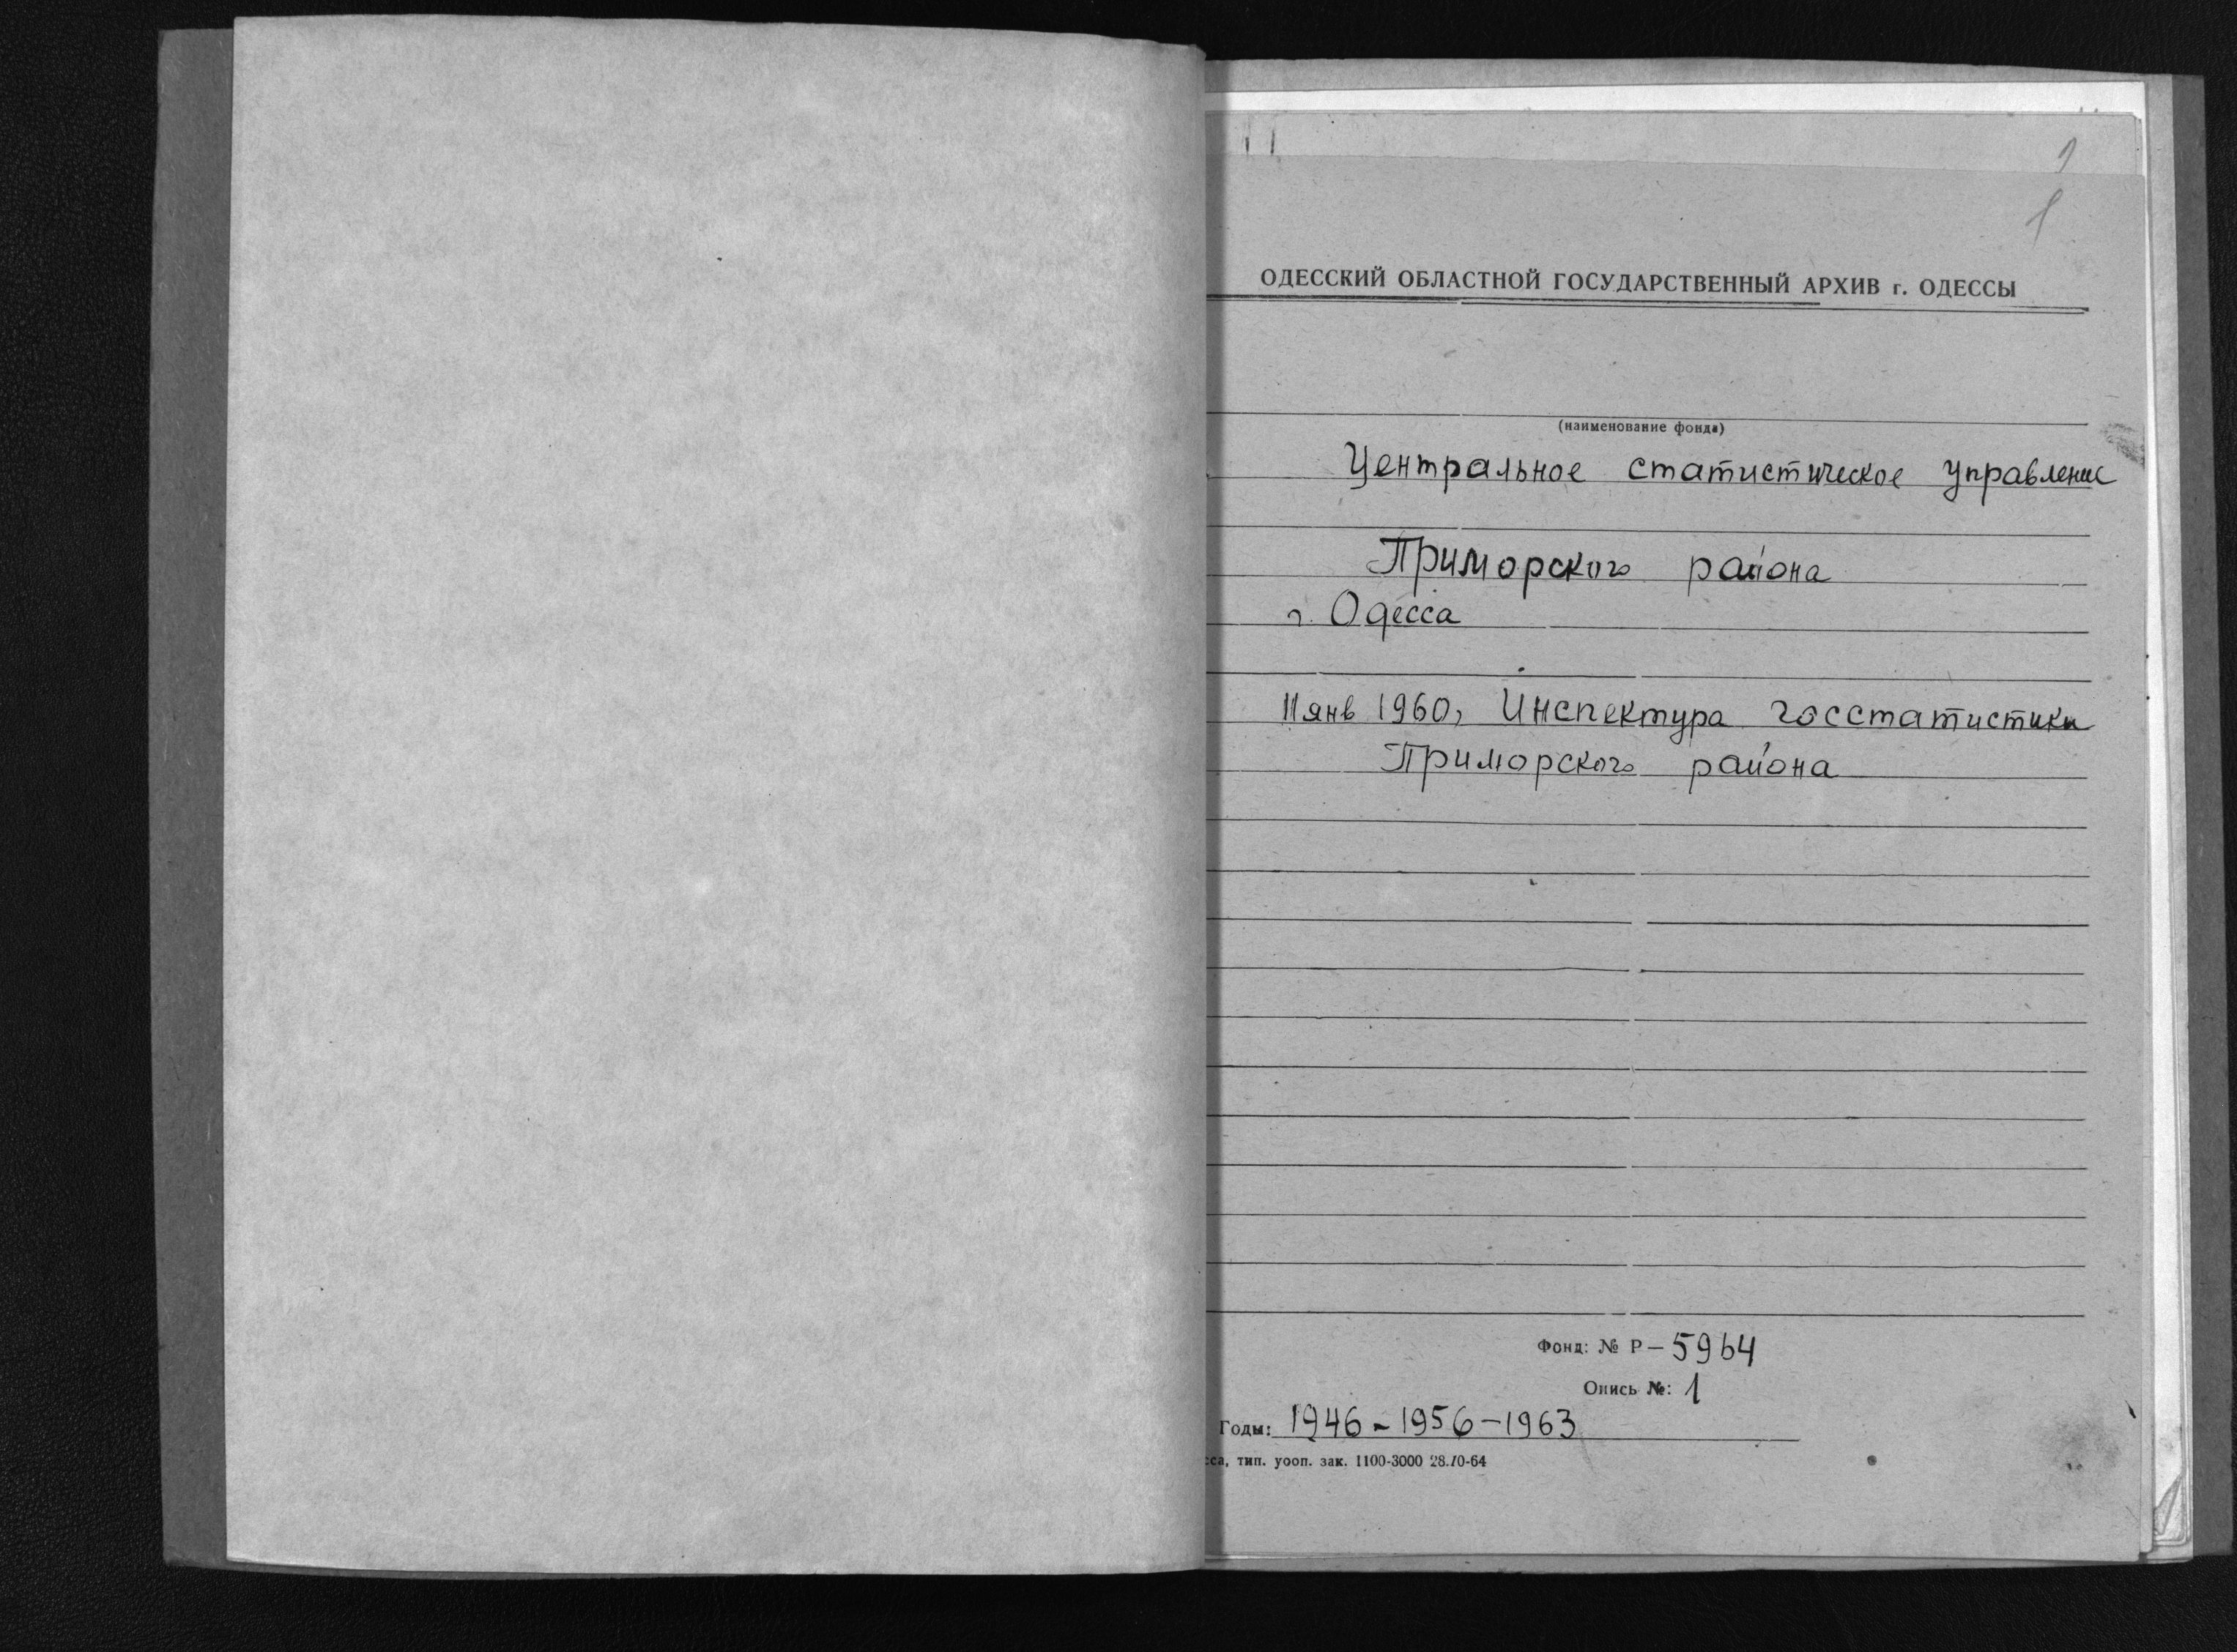 1
1
ОДЕССКИЙ ОБЛАСТНОЙ ГОСУДАРСТВЕННЫЙ АРХИВ г. ОДЕССЫ
(наименование фонда)
Центральное статистическое управление
Приморского района
г. Одесса
11 янв 1960, Инспектура госстатистики
Приморского района
Фонд: № Р-5964
Опись №: 1
Годы: 1946-1956-1963
сса, тип. уооп. зак. 1100-3000 28.10-64